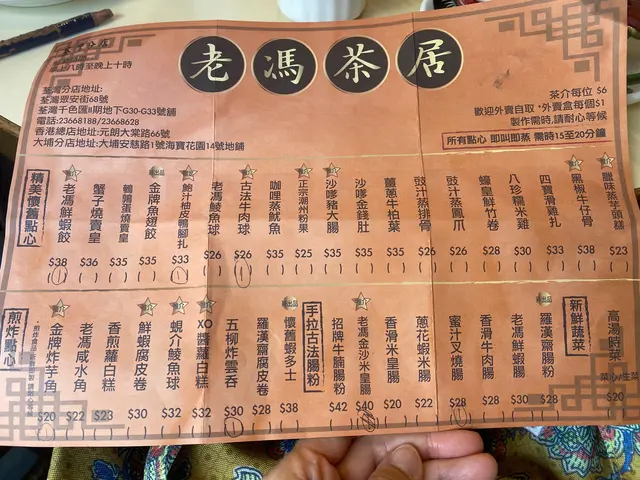 老馮茶居
荃灣分店
早上八時至晚上十時
荃灣分店地址:
荃灣眾安街68號
荃灣千色匯II期地下G30-G33號舖
電話:23668188/23668628
香港總店地址:元朗大棠路66號
大埔分店地址:大埔安慈路1號海寶花園14號地舖
茶介每位 $6
歡迎外賣自取 *外賣盒每個$1
製作需時,請耐心等候
所有點心 即叫即蒸 需時15至20分鐘
精美懷舊點心
老馮鮮蝦餃 $38
蟹子燒賣皇 $36
鵪鶉蛋燒賣皇 $35
金牌魚翅餃 $35
鮑汁柚皮鴨腳扎 $33
老馮鯪魚球 $26
古法牛肉球 $26
咖哩蒸魷魚 $35
正宗潮州粉果 $25
沙嗲豬大腸 $35
沙嗲金錢肚 $35
薑蔥牛柏葉 $35
豉汁蒸排骨 $26
豉汁蒸鳳爪 $26
蠔皇鮮竹卷 $28
八珍糯米雞 $30
四寶滑雞扎 $33
黑椒牛仔骨 $38
臘味蒸芋頭糕 $23
煎炸點心
金牌炸芋角 $20
老馮咸水角 $22
香煎蘿白糕 $23
鮮蝦腐皮卷 $30
蜆介鯪魚球 $32
XO醬蘿白糕 $32
五柳炸雲吞 $30
羅漢齋腐皮卷 $28
懷舊蝦多士 $38
手拉古法腸粉
招牌牛腩腸粉 $42
老馮金沙米皇腸 $40
香滑米皇腸 $20
蔥花蝦米腸 $22
蜜汁叉燒腸 $28
香滑牛肉腸 $28
老馮鮮蝦腸 $30
羅漢齋腸粉 $28
新鮮蔬菜
高湯時菜
菜心/生菜
$20